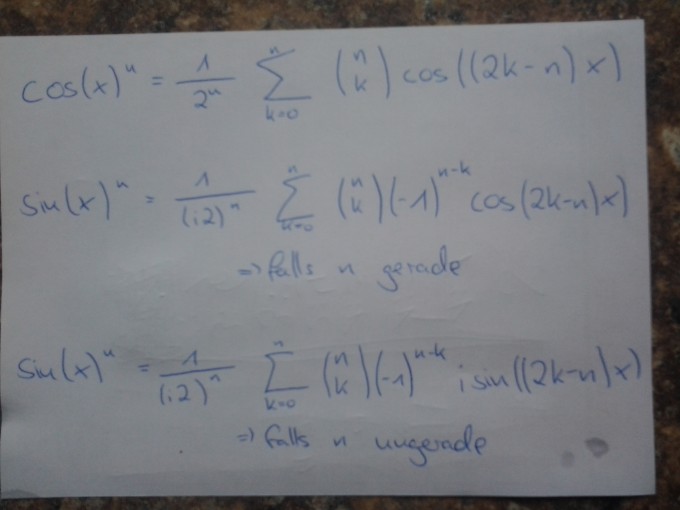 cos(x)ⁿ = 1/2ⁿ ∑_{k=0}^{n} (n k) cos((2k-n)x)
sin(x)ⁿ = 1/(i2)ⁿ ∑_{k=0}^{n} (n k)(-1)^{n-k} cos(2k-n)x)
=> falls n gerade
sin(x)ⁿ = 1/(i2)ⁿ ∑_{k=0}^{n} (n k)(-1)^{n-k} i sin((2k-n)x)
=> falls n ungerade